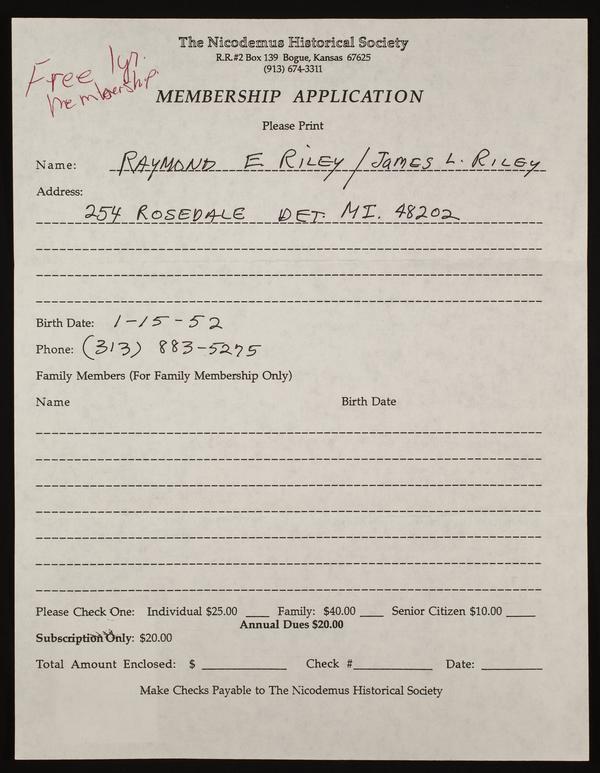 The Nicodemus Historical Society
R.R.#2 Box 139 Bogue, Kansas 67625
(913) 674-3311
Free 1yr.
Membership
MEMBERSHIP APPLICATION
Please Print
Name: RAYMOND E RILEY / JAMES L. RILEY
Address:
254 ROSEDALE DET. MI. 48202
Birth Date: 1-15-52
Phone: (313) 883-5275
Family Members (For Family Membership Only)
Name Birth Date
Please Check One: Individual $25.00 ___ Family: $40.00 ___ Senior Citizen $10.00 ___
Annual Dues $20.00
Subscription Only: $20.00
Total Amount Enclosed: $ ___ Check # ___ Date: ___
Make Checks Payable to The Nicodemus Historical Society